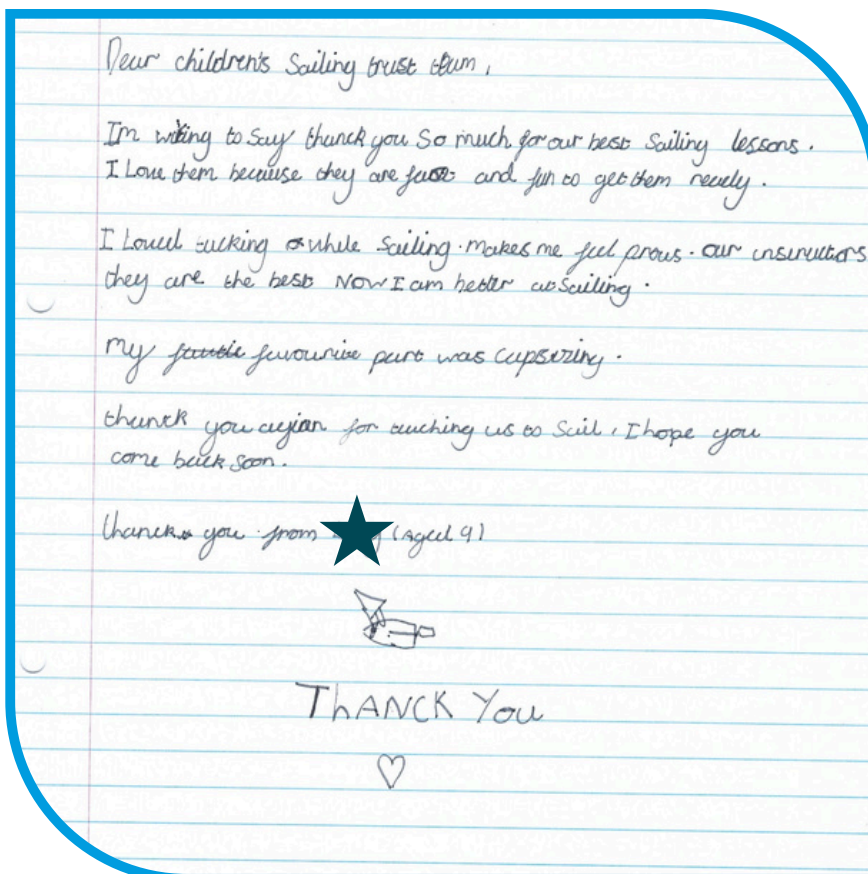 Dear children's Sailing trust team,
Im writing to say thanck you so much for our best sailing lessons.
I Love them because they are fast and fun to get them ready.
I Loved tacking while sailing. makes me feel prous. our instructors
they are the best NOW I am better at sailing.
my favourite part was capsizing.
thanck you agian for teaching us to sail, I hope you
come back soon.
thanck you from (Aged 9)
THANCK YOU